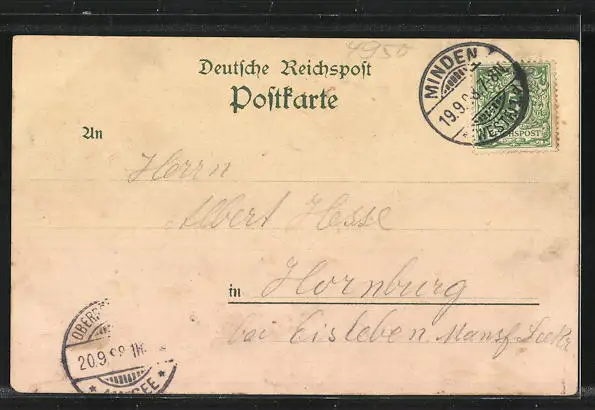 4950
Deutsche Reichspost
Postkarte
MINDEN
19.9.98.7-8N.
WESTFALEN
REICHSPOST
An
Herrn
Albert Hesse
in Hornburg
bei Eisleben Mansf. Seekr
OBERR
20.9.98.
SEE